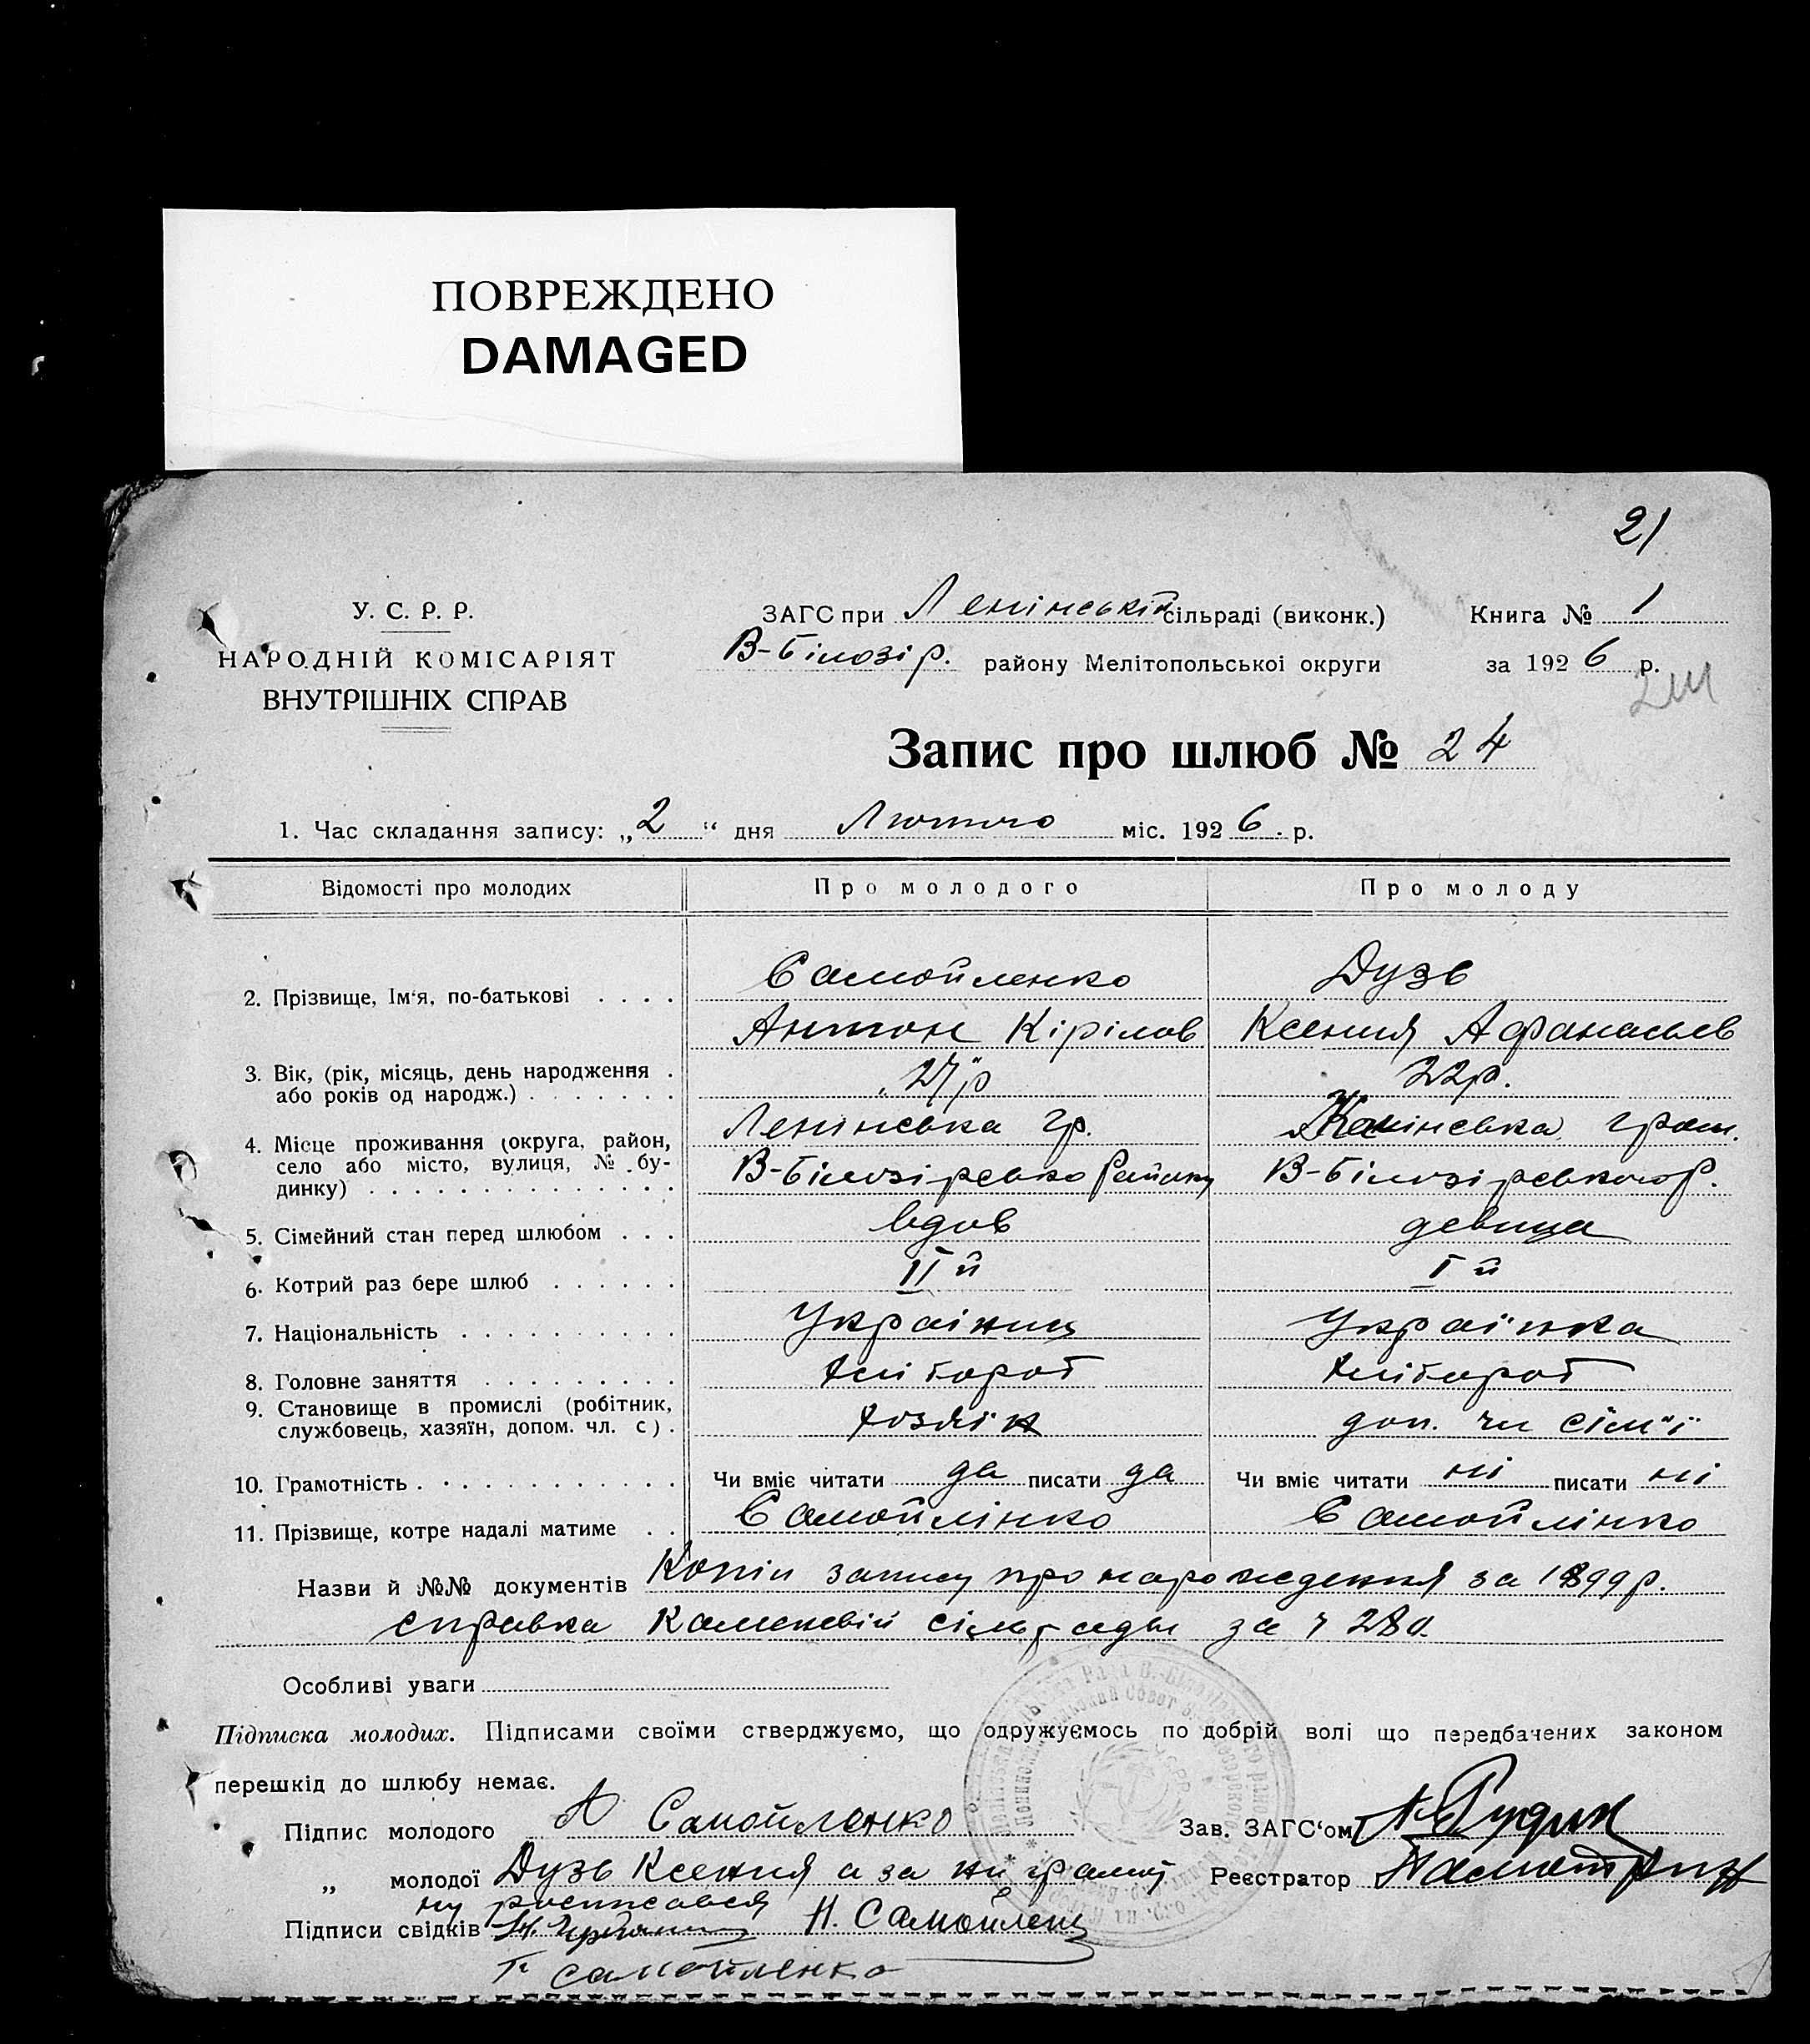 ПОВРЕЖДЕНО
DAMAGED
21
У. С. Р. Р.
НАРОДНІЙ КОМІСАРІЯТ
ВНУТРІШНІХ СПРАВ
ЗАГС при Ленінській сільраді (виконк.) Книга № 1
В-Білозір. району Мелітопольськоі округи за 1926 р.
Запис про шлюб № 24
1. Час складання запису: „2“ дня Лютого міс. 1926. р.
Відомості про молодих Про молодого Про молоду
2. Прізвище, Ім‘я, по-батькові . . . . Самойленко Дузь
Антон Кірілов Ксения Афанасьев
3. Вік, (рік, місяць, день народження . „27”р 22р.
або років од народж.) . . . . . . .
4. Місце проживання (округа, район, Ленінська гр. інська гром.
село або місто, вулиця, № бу- В-Білозірсько Району В-Білозірського Р.
динку) . . . . . . . . . . . . . .
5. Сімейний стан перед шлюбом . . . вдов девица
6. Котрий раз бере шлюб . . . . . . ІІй Ій
7. Національність . . . . . . . . . . Украіниц Украінка
8. Головне заняття . . . . . . . . . Хлібороб Хлібороб
9. Становище в промислі (робітник, хозяін доп. чл сім"ї
службовець, хазяїн, допом. чл. с) .
10. Грамотність . . . . . . . . . . . Чи вміє читати да писати да Чи вміє читати ні писати ні
11. Прізвище, котре надалі матиме . . Самойлінко Самойлінко
Назви й №№ документів Копіи запису про нарождення за 1899р.
справка Каменевій сільради за ч 280.
Особливі уваги
Підписка молодих. Підписами своїми стверджуємо, що одружуємось по добрій волі що передбачених законом
перешкід до шлюбу немає.
Підпис молодого А Самойленко Зав. ЗАГС‘ом
„ молодої Дузь Ксения а за ни грамот Реєстратор
ну росписався
Підписи свідків Н. Самойленк
Г. Самойленко